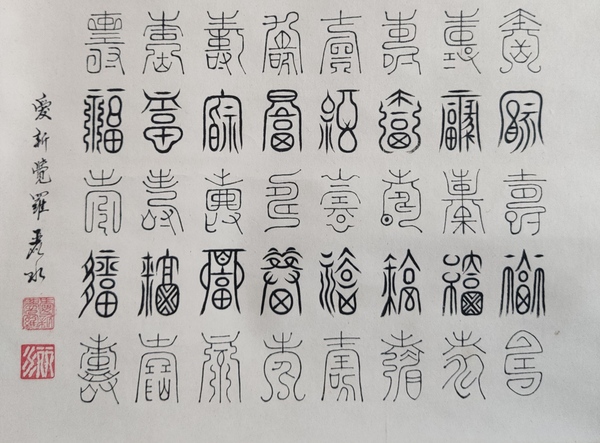 壽壽壽壽壽壽壽壽
福福福福福福福福
壽壽壽壽壽壽壽壽
福福福福福福福福
壽壽壽壽壽壽壽壽
愛新覺羅